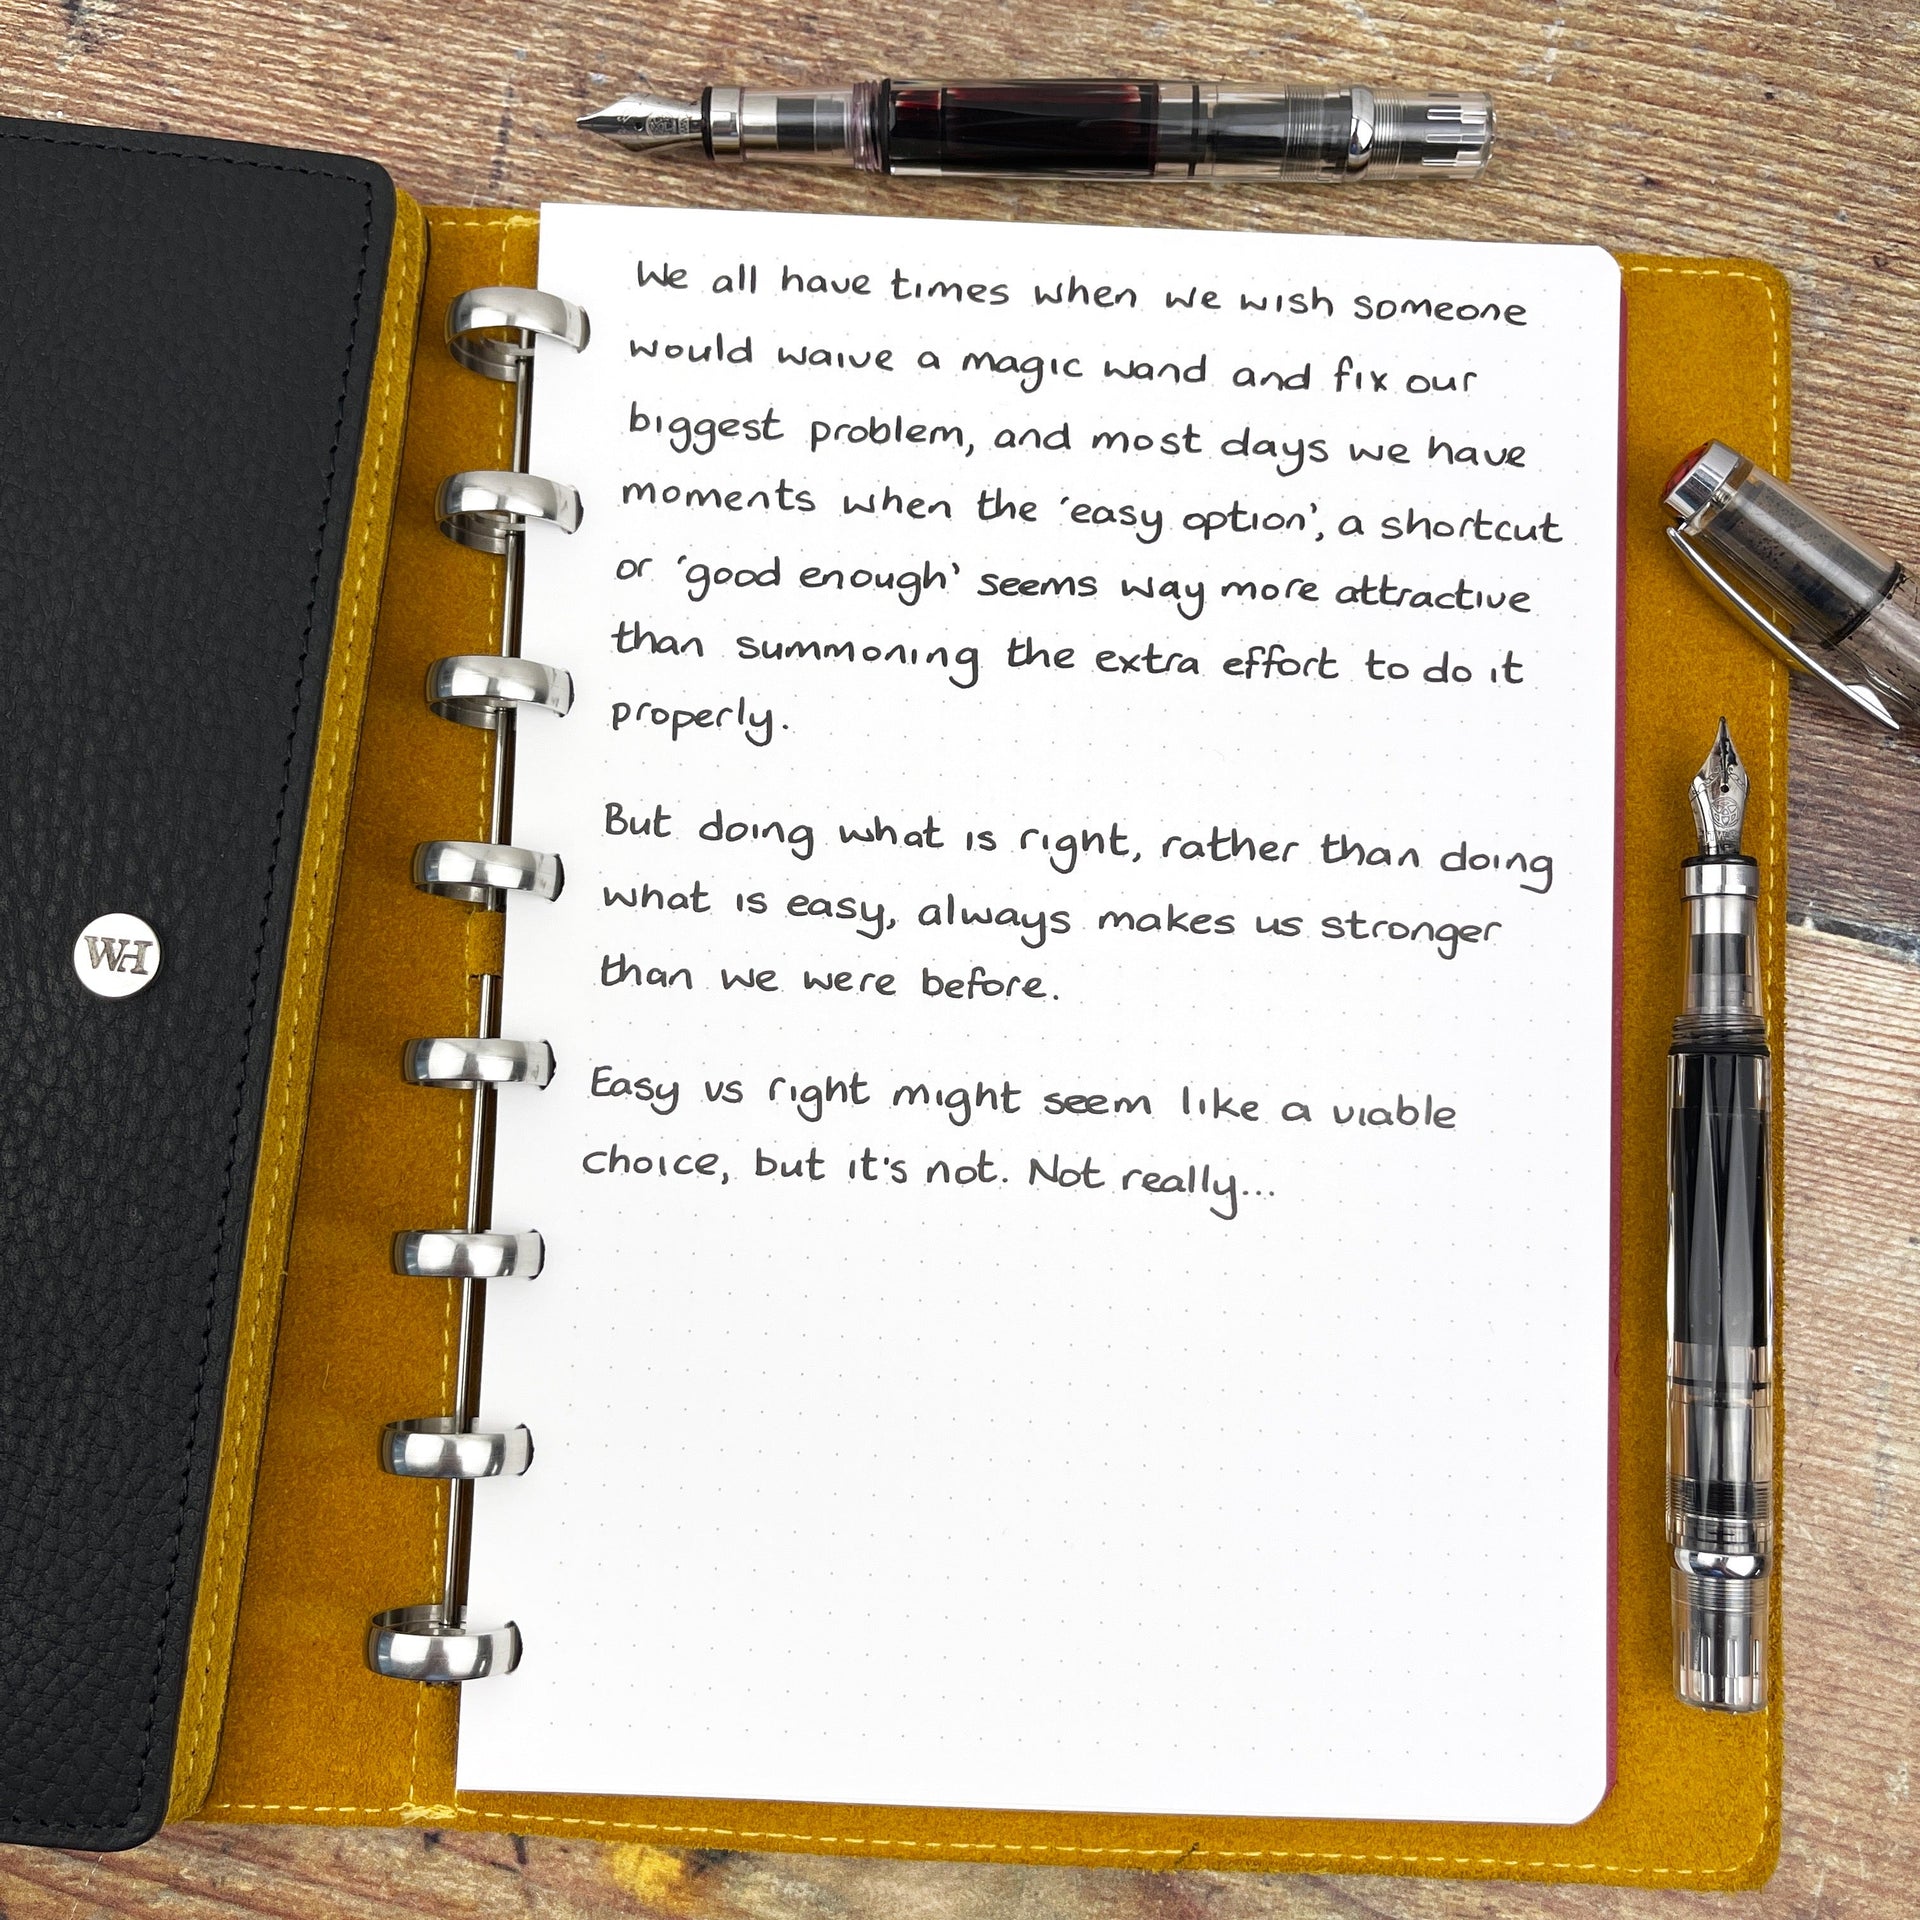 We all have times when we wish someone
would waive a magic wand and fix our
biggest problem, and most days we have
moments when the 'easy option', a shortcut
or 'good enough' seems way more attractive
than summoning the extra effort to do it
properly.
But doing what is right, rather than doing
what is easy, always makes us stronger
than we were before.
Easy vs right might seem like a viable
choice, but it's not. Not really...
WH